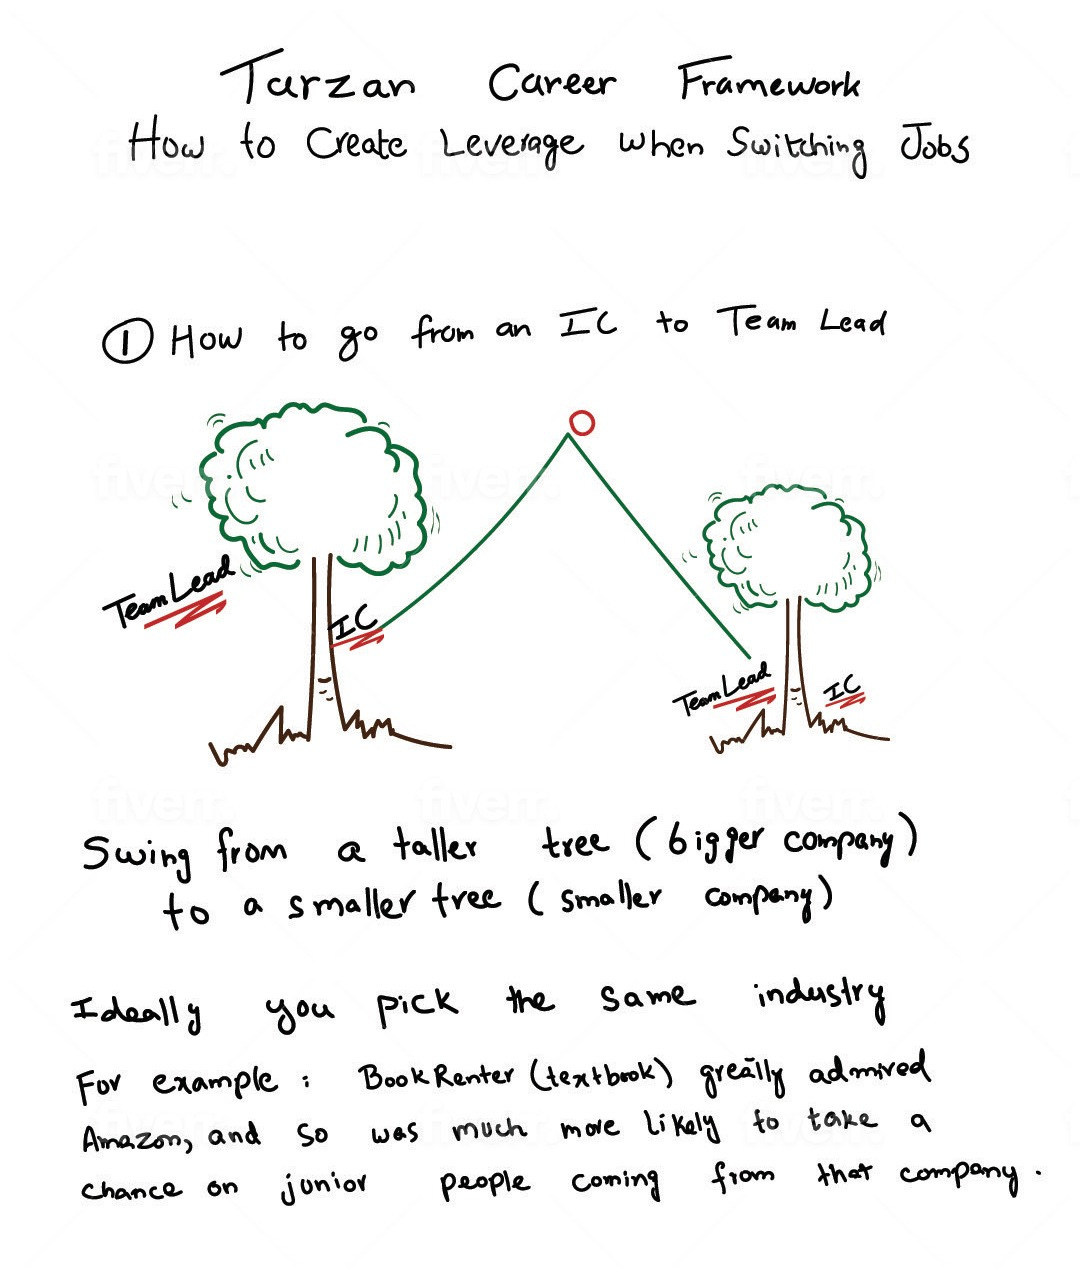 Tarzan Career Framework
How to Create Leverage when Switching Jobs
① How to go from an IC to Team Lead
Team Lead
IC
Team Lead
IC
Swing from a taller tree (bigger company)
to a smaller tree (smaller company)
Ideally you pick the same industry
For example: BookRenter (textbook) greatly admired
Amazon, and so was much more likely to take a
chance on junior people coming from that company.
fiverr.